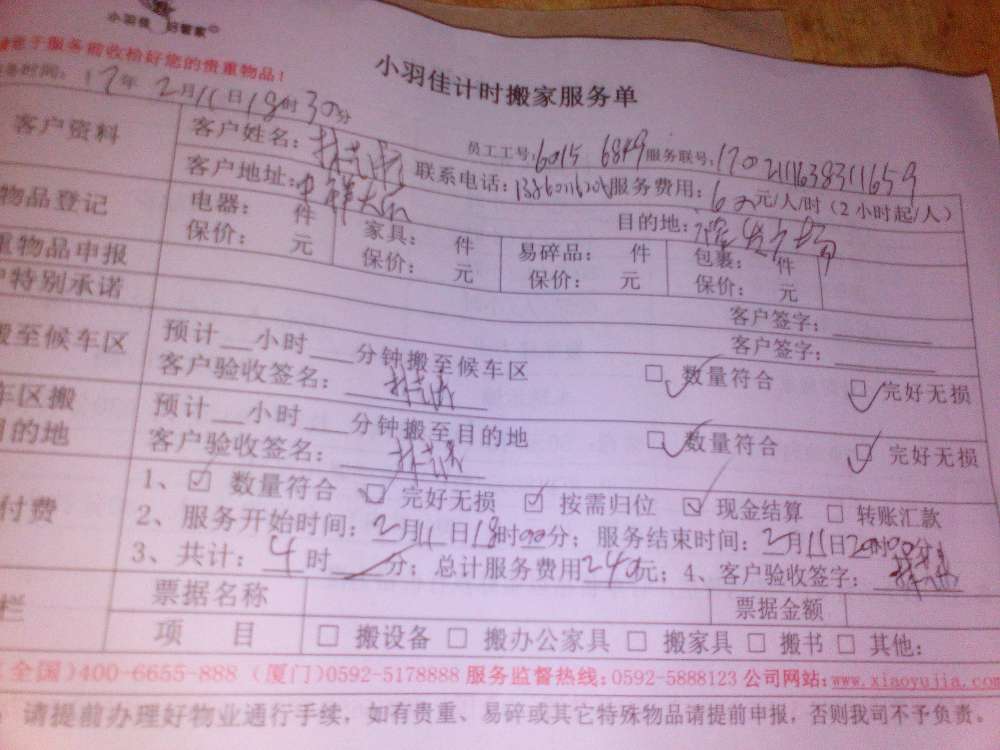 小羽佳 好管家
于服务前收拾好您的贵重物品!
小羽佳计时搬家服务单
务时间: 17年2月11日18时30分
员工工号: 6015 6849 服务联号: 1702111638311659
客户资料
客户姓名:
联系电话: 服务费用: 60元/人/时(2小时起/人)
客户地址:
目的地:
物品登记
电器: 件 家具: 件 易碎品: 件 包裹: 件
保价: 元 保价: 元 保价: 元 保价: 元
重物品申报
客户签字:
户特别承诺
客户签字:
搬至候车区
预计__小时__分钟搬至候车区
客户验收签名:
□ 数量符合 □ 完好无损
车区搬
目的地
预计__小时__分钟搬至目的地
客户验收签名:
□ 数量符合 □ 完好无损
付费
1、☑ 数量符合 ☑ 完好无损 ☑ 按需归位 ☑ 现金结算 □ 转账汇款
2、服务开始时间: 2月11日18时00分; 服务结束时间: 2月11日20时00分
3、共计: 4时__分; 总计服务费用240元; 4、客户验收签字:
栏
票据名称 票据金额
项 目 □ 搬设备 □ 搬办公家具 □ 搬家具 □ 搬书 □ 其他:
(全国)400-6655-888 (厦门)0592-5178888 服务监督热线: 0592-5888123 公司网站: www.xiaoyujia.com
请提前办理好物业通行手续, 如有贵重、易碎或其它特殊物品请提前申报, 否则我司不予负责。